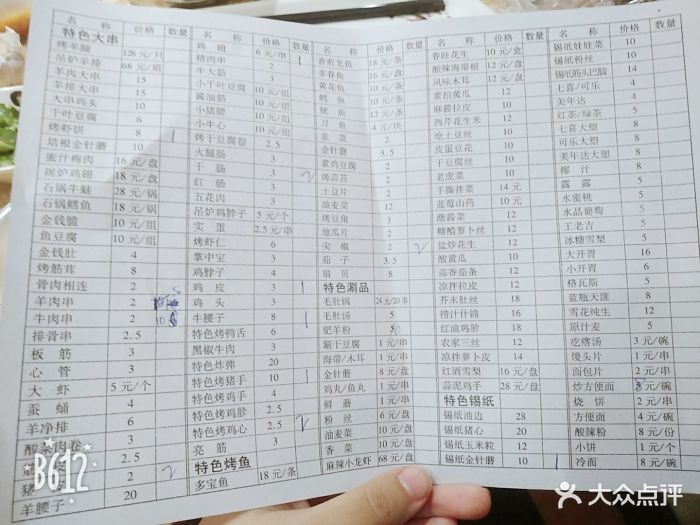 名 称 价格 数量
特色大串
烤羊腿 128元/只
吊炉羊排 68元/扇
羊肉大串 15
羊排大串 15
大串鸡头 10
干叶豆腐 6
烤虾饼 8
培根金针蘑 10
蜜汁梅肉 16元/盘
摇炉鸡翅 18元/盘
石锅牛蛙 28元/锅
石锅鳕鱼 18元/锅
金钱脆 10元/组
鱼豆腐 10元/组
金钱肚 4
烤筋茸 8
骨肉相连 2
羊肉串 2
牛肉串 2
排骨串 2.5
板 筋 2
心 管 3
大 虾 5元/个
蚕 蛹 4
羊净排 6
酸菜肉卷 3
2.5
2
羊腰子 20
鸡 翅 6元/串 1
猪肉串 2
牛大筋 3
小干叶豆腐 10元/组
酱油筋 10元/组
小猪腰 10元/组
小牛心 10元/组
烤干豆腐卷 2.5
火腿肠 3
干 肠 3
红 肠 3
五花肉 3
吊炉鸡脖子 5元/个
实 蛋 2.5元/串
烤虾仁 6
掌中宝 3
鸡脖子 4
鸡 皮 2 1
鸡 头 3
牛腰子 8 1
特色烤鸭舌 6
黑椒牛肉 3
特色炸弹 20
特色烤猪手 10 1
特色烤鸡手 4
特色烤鸡胗 2.5
特色烤鸡心 2.5
亮 筋 3
特色烤鱼
多宝鱼 18元/条
名 称 价格 数量
香煎龙鱼 18元/条
多春鱼 16元/盘
黄花鱼 10元/条
鳕 鱼 10元/条
鱿 鱼 10元/条
刀 鱼 4元/块
韭 菜 2
金针蘑 3.5
素鸡豆腐 2
烤蒜苔 2
土豆片 2
油麦菜 12
烤豆角 3
地瓜片 2
尖 椒 2
茄 子 3.5
扇 贝 8
特色涮品
毛肚锅 24元/20串
毛肚汤 5
肥羊粉
涮干豆腐 1元/串
海带/木耳 1元/串
金针蘑 8元/盘
鸡丸/鱼丸 1元/串
鲜 蘑 1元/串
粉 丝 6元/盘
油麦菜 10元/盘
香 菜 10元/盘
麻辣小龙虾 68元/盘
名 称 价格 数量
春旺花生 10元/盒
酸辣海带根 12元/盘
风味木耳 12元/盘
素拍黄瓜 10
麻酱拉皮 10
西芹花生米 10
炝土豆丝 10
皮蛋豆花 10
干豆腐丝 10
老虎菜 10
手撕拌菜 14元
蓝莓山药 10元
蘸酱菜 12
糖醋萝卜丝 12
盐炒花生 12
酸黄瓜 10
蒜香茄条 12
凉拌拉皮 12
芥末肚丝 18
捞汁什锦 16
红油鸡胗 18
农家三丝 12
凉拌萝卜皮 14
红酒雪梨 16元/盘
蒜泥鸡手 28元/盘
特色锡纸
锡纸油边 28
锡纸猪心 20
锡纸玉米粒 12
锡纸金针蘑 10
名 称 价格 数量
锡纸娃娃菜 10
锡纸粉丝 10
锡纸筋头巴脑 14
七喜/可乐 3
美年达 4
红茶/绿茶 4
七喜大塑 8
可乐大塑 8
美年达大塑 8
椰 汁 8
露 露 5
水蜜桃 5
水晶葡萄 5
王老吉 5
冰糖雪梨 5
大开胃 16
小开胃 6
格瓦斯 5
蓝瓶天涯 8
雪花纯生 12
原汁麦 5
疙瘩汤 3元/碗
馒头片 1元/串
面包片 2元/串
炒方便面 8元/碗
烧 饼 2元/串
方便面 4元/碗
酸辣粉 8元/份
小饼 1元/个
冷面 8元/碗
B612
大众点评